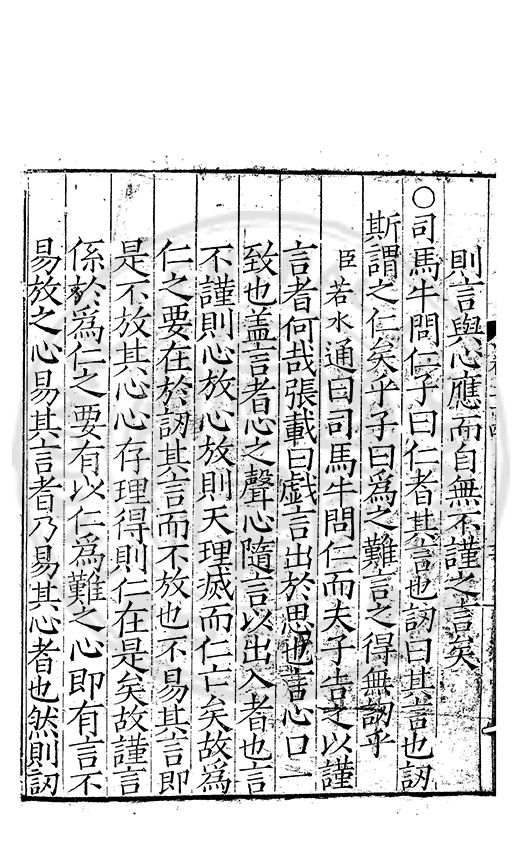 則言與心應而自無不謹之言矣
○司馬牛問仁子曰仁者其言也訒曰其言也訒
斯謂之仁矣乎子曰為之難言之得無訒乎
臣若水通曰司馬牛問仁而夫子告之以謹
言者何哉張載曰戲言出於思也言心口一
致也盖言者心之聲心隨言以出入者也言
不謹則心放心放則天理滅而仁亡矣故為
仁之要在於訒其言而不放也不易其言即
是不放其心心存理得則仁在是矣故謹言
係於為仁之要有以仁為難之心即有言不
易放之心易其言者乃易其心者也然則訒